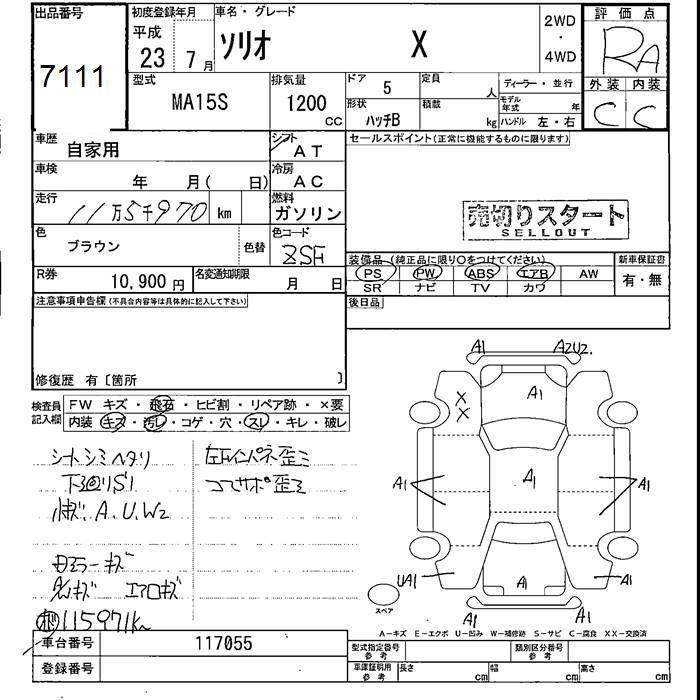 出品番号
7111
初度登録年月
平成
23 7月
車名・グレード
ソリオ X
2WD
・
4WD
評価点
RA
外装 内装
C C
型式
MA15S
排気量
1200
CC
ドア
5
定員
人
ディーラー・並行
形状
ハッチB
積載
kg
モデル年式
年
ハンドル 左・右
車歴
自家用
シフト
AT
セールスポイント(正常に機能するものに限ります)
車検
年 月( 日)
冷房
AC
走行
11万5千970 km
燃料
ガソリン
売切りスタート
SELLOUT
色
ブラウン
色替
色コード
ZSF
装備品(純正品に限り〇をつけてください)
新車保証書
PS PW ABS エアB AW
有・無
SR ナビ TV カワ
R券
10,900 円
名変通知期限
月 日
後日品
注意事項申告欄(不具合内容等は具体的に記入して下さい)
修復歴 有〔箇所 〕
検査員
記入欄
FW キズ・飛石・ヒビ割・リペア跡・×要
内装 キズ・汚レ・コゲ・穴・スレ・キレ・破レ
シートシミヘタリ
下廻りS1
小キズ A.U.W2
左右インパネ歪ミ
コアサポ歪ミ
ミラーキズ
エアロキズ
115971km
A1
A2U2.
A1
X
X
A1
A1
A1
UA1
A1
A1
A1
スペア
A-キズ E-エクボ U-凹み W-補修跡 S-サビ C-腐食 XX-交換済
車台番号
117055
登録番号
型式指定番号
参考
類別区分番号
参考
車庫証明用
参考
長さ
cm
幅
cm
高さ
cm